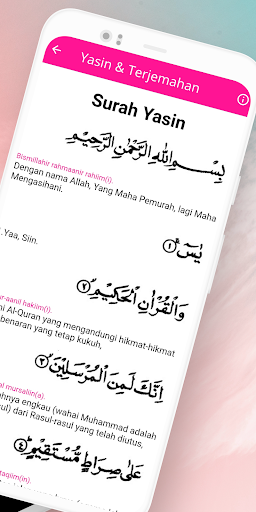 Yasin & Terjemahan
Surah Yasin
بِسْمِ اللّٰهِ الرَّحْمٰنِ الرَّحِيْمِ
Bismillahir rahmaanir rahiim(i).
Dengan nama Allah, Yang Maha Pemurah, lagi Maha
Mengasihani.
يٰسۤ ۚ ﴿١﴾
Yaa, Siin.
وَالْقُرْاٰنِ الْحَكِيْمِۙ ﴿٢﴾
-aanil hakiim(i).
Al-Quran yang mengandungi hikmat-hikmat
benaran yang tetap kukuh,
اِنَّكَ لَمِنَ الْمُرْسَلِيْنَۙ ﴿٣﴾
mursaliin(a).
hnya engkau (wahai Muhammad adalah
rasul) dari Rasul-rasul yang telah diutus,
عَلٰى صِرَاطٍ مُّسْتَقِيْمٍۗ ﴿٤﴾
taqiim(in).